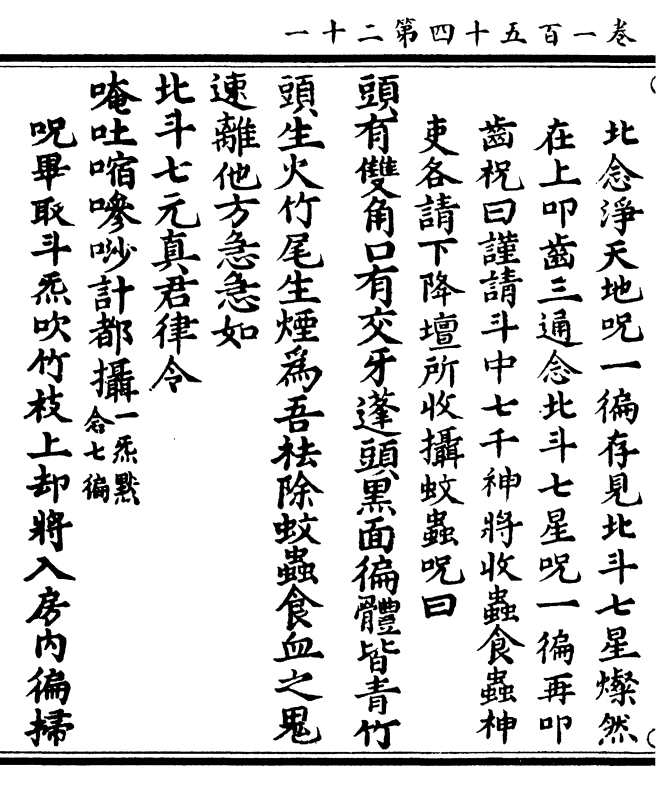 卷一百五十四第二十一
北念淨天地呪一徧存見北斗七星燦然
在上叩齒三通念北斗七星呪一徧再叩
齒祝曰謹請斗中七千神將收蟲食蟲神
吏各請下降壇所收攝蚊蟲呪曰
頭有雙角口有交牙蓬頭黑面徧體皆青竹
頭生火竹尾生煙為吾祛除蚊蟲食血之鬼
速離他方急急如
北斗七元真君律令
唵吐噏嘇唦計都攝一炁默念七徧
呪畢取斗炁吹竹枝上却將入房內徧掃